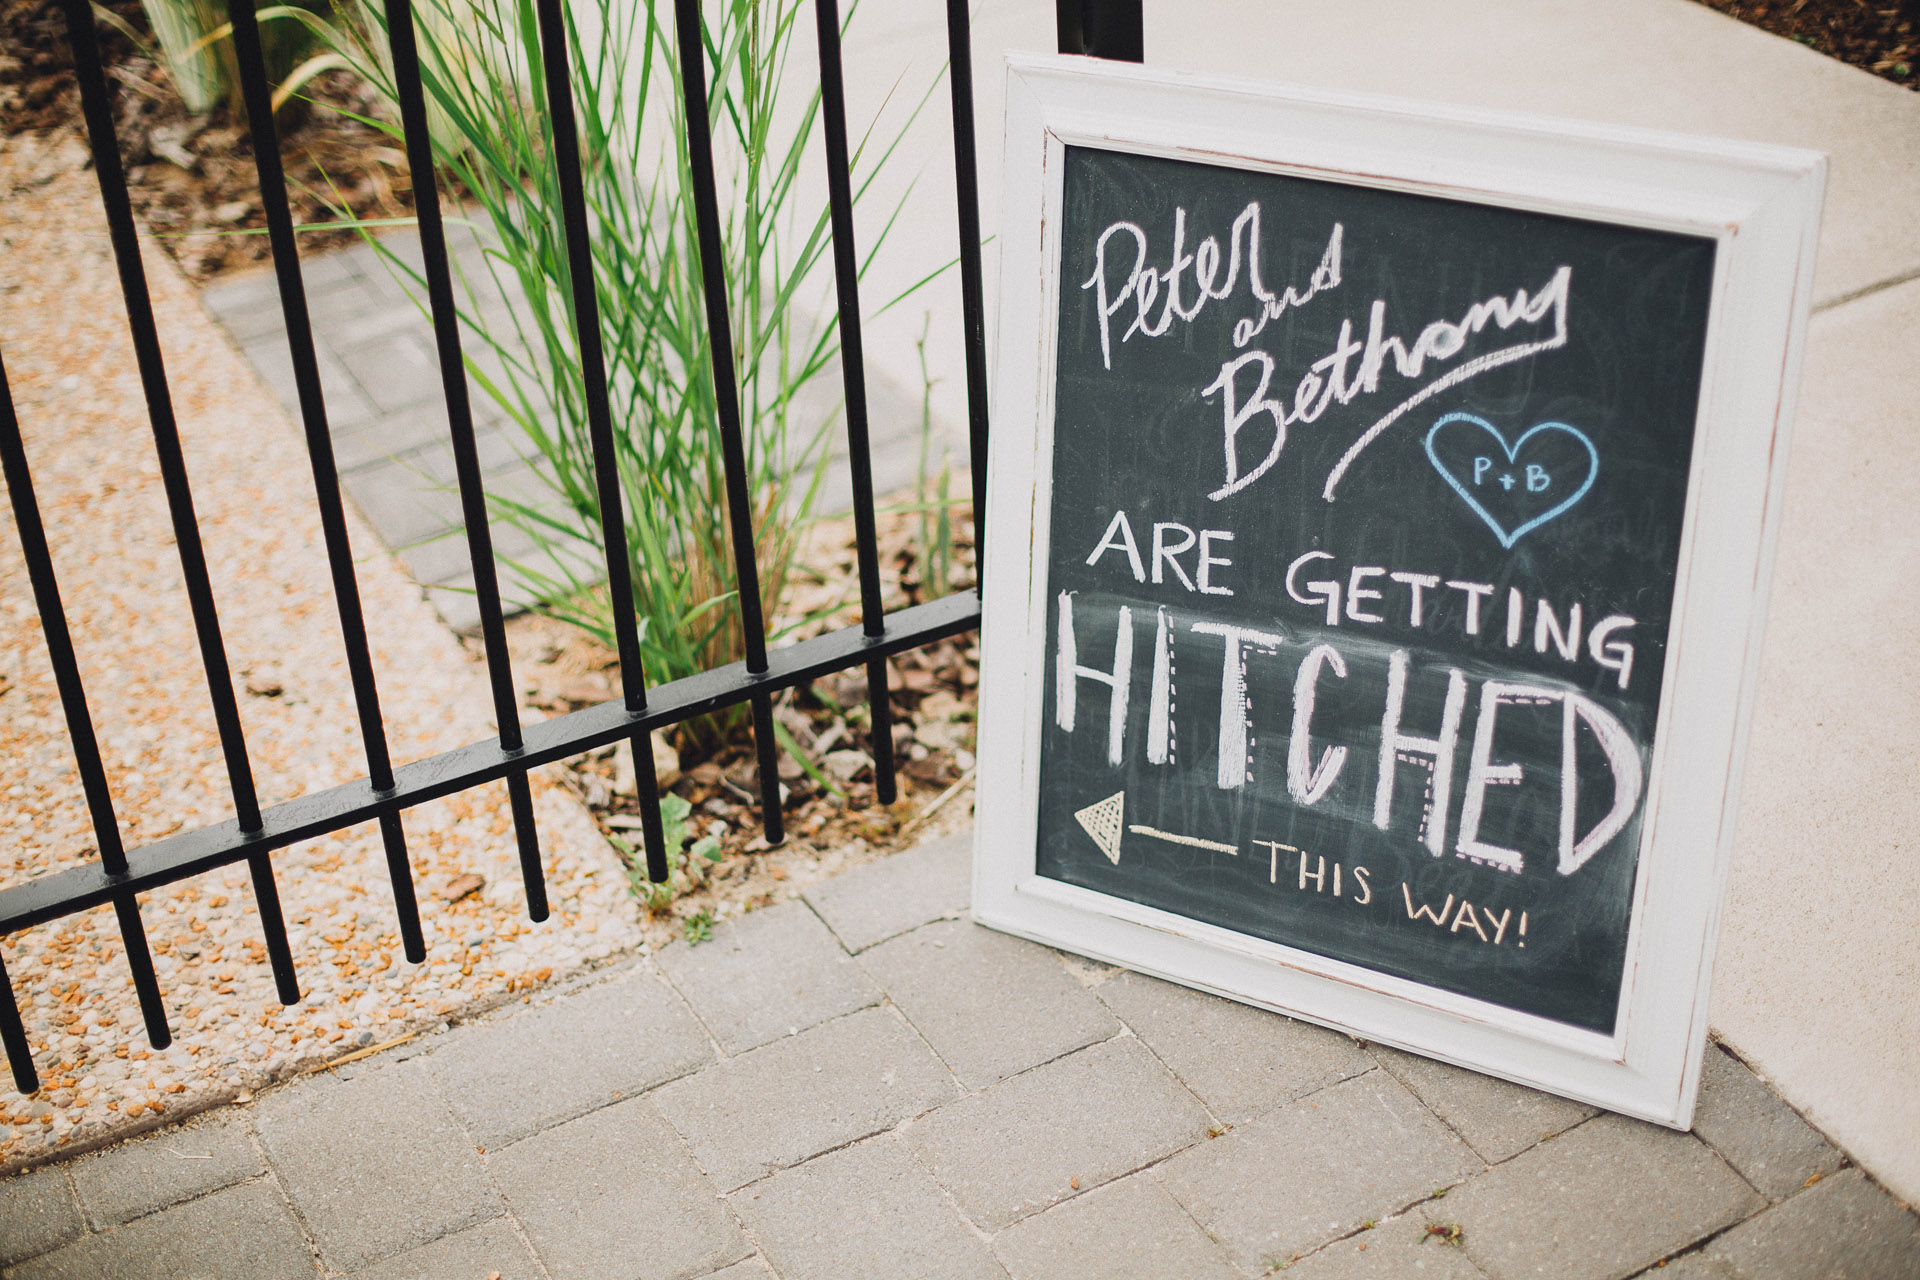 Peter
and
Bethany
P + B
ARE GETTING
HITCHED
THIS WAY!